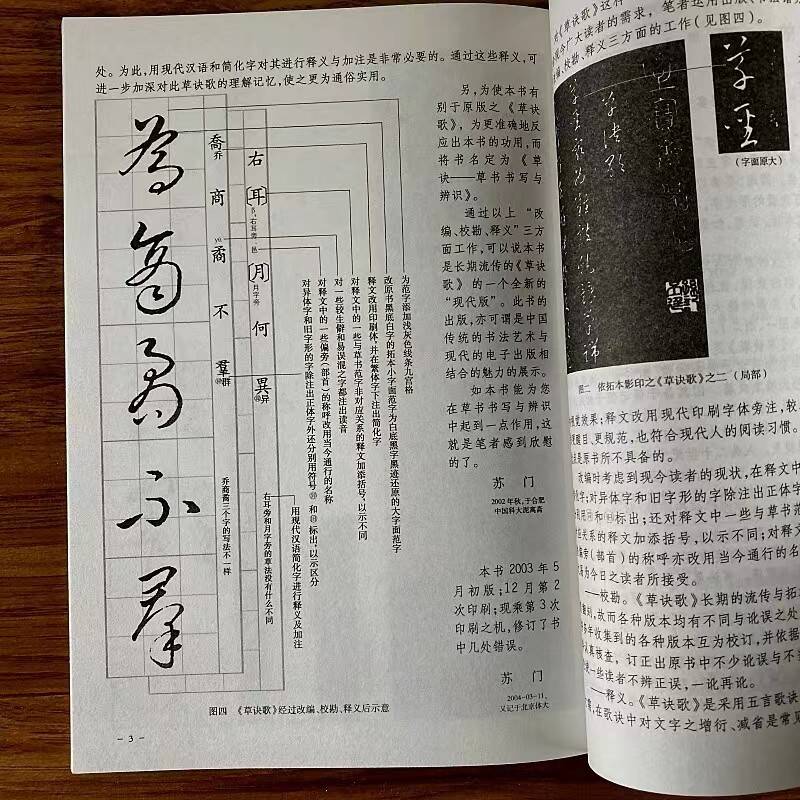 处。为此,用现代汉语和简化字对其进行释义与加注是非常必要的。通过这些释义,可
进一步加深对此草诀歌的理解记忆,使之更为通俗实用。
喬乔
商
矞
yù
不
羣群
右
耳
月
月字旁
何
異异
为范字添加浅灰色线条九宫格
改原书黑底白字的拓本小字面范字为白底黑字黑迹还原的大字面范字
释文改用印刷体,并在繁体字下注出简化字
对释文中的一些与草书范字非对应关系的释文加添括号,以示不同
对一些较生僻和易误混之字都注出读音
对释文中的一些偏旁(部首)的称呼改用当今通行的名称
对异体字和旧字形的字除注出正体字外还分别用符号
和
标出,以示区分
用现代汉语简化字进行释义及加注
右耳旁和月字旁的草法没有什么不同
乔商矞三个字的写法不一样
图四 《草诀歌》经过改编、校勘、释义后示意
- 3 -
另,为使本书有
别于原版之《草诀
歌》,为更准确地反
应出本书的功用,而
将书名定为《草
诀——草书书写与
辨识》。
通过以上“改
编、校勘、释义”三方
面工作,可以说本书
是长期流传的《草诀
歌》的一个全新的
“现代版”。此书的
出版,亦可谓是中国
传统的书法艺术与
现代的电子出版相
结合的魅力的展示。
如本书能为您
在草书书写与辨识
中起到一点作用,这
就是笔者感到欣慰
的了。
苏 门
2002年秋,于合肥
中国科大泥寓斋
本书 2003 年 5
月初版;12 月第 2
次印刷;现乘第 3 次
印刷之机,修订了书
中几处错误。
苏 门
2004-03-11,
又记于北京体大
《草诀歌》这种
今广大读者的需求,笔者运用出版
、校勘、释义三方面的工作(见图四)。
(字面原大)
图二 依拓本影印之《草诀歌》之二(局部)
视觉效果;释文改用现代印刷字体旁注,较
醒目、更规范,也符合现代人的阅读习惯。
是原书所不具备的。
改编时考虑到现今读者的现状,在释文中
字;对异体字和旧字形的字除注出正体字
标出;还对释文中一些与草书范
关系的释文加添括号,以示不同;对释文
偏旁(部首)的称呼亦改用当今通行的名
为今日之读者所接受。
——校勘。《草诀歌》长期的流传与拓
翻刻,故而各种版本均有不同与讹误之处
年收集到的各种版本互为校订,并依据
认真核查,订正出原书中不少讹误与不
一些读者不辨正误,一讹再讹。
——释义。《草诀歌》是采用五言歌诀
,在歌诀中对文字之增衍、减省是常见